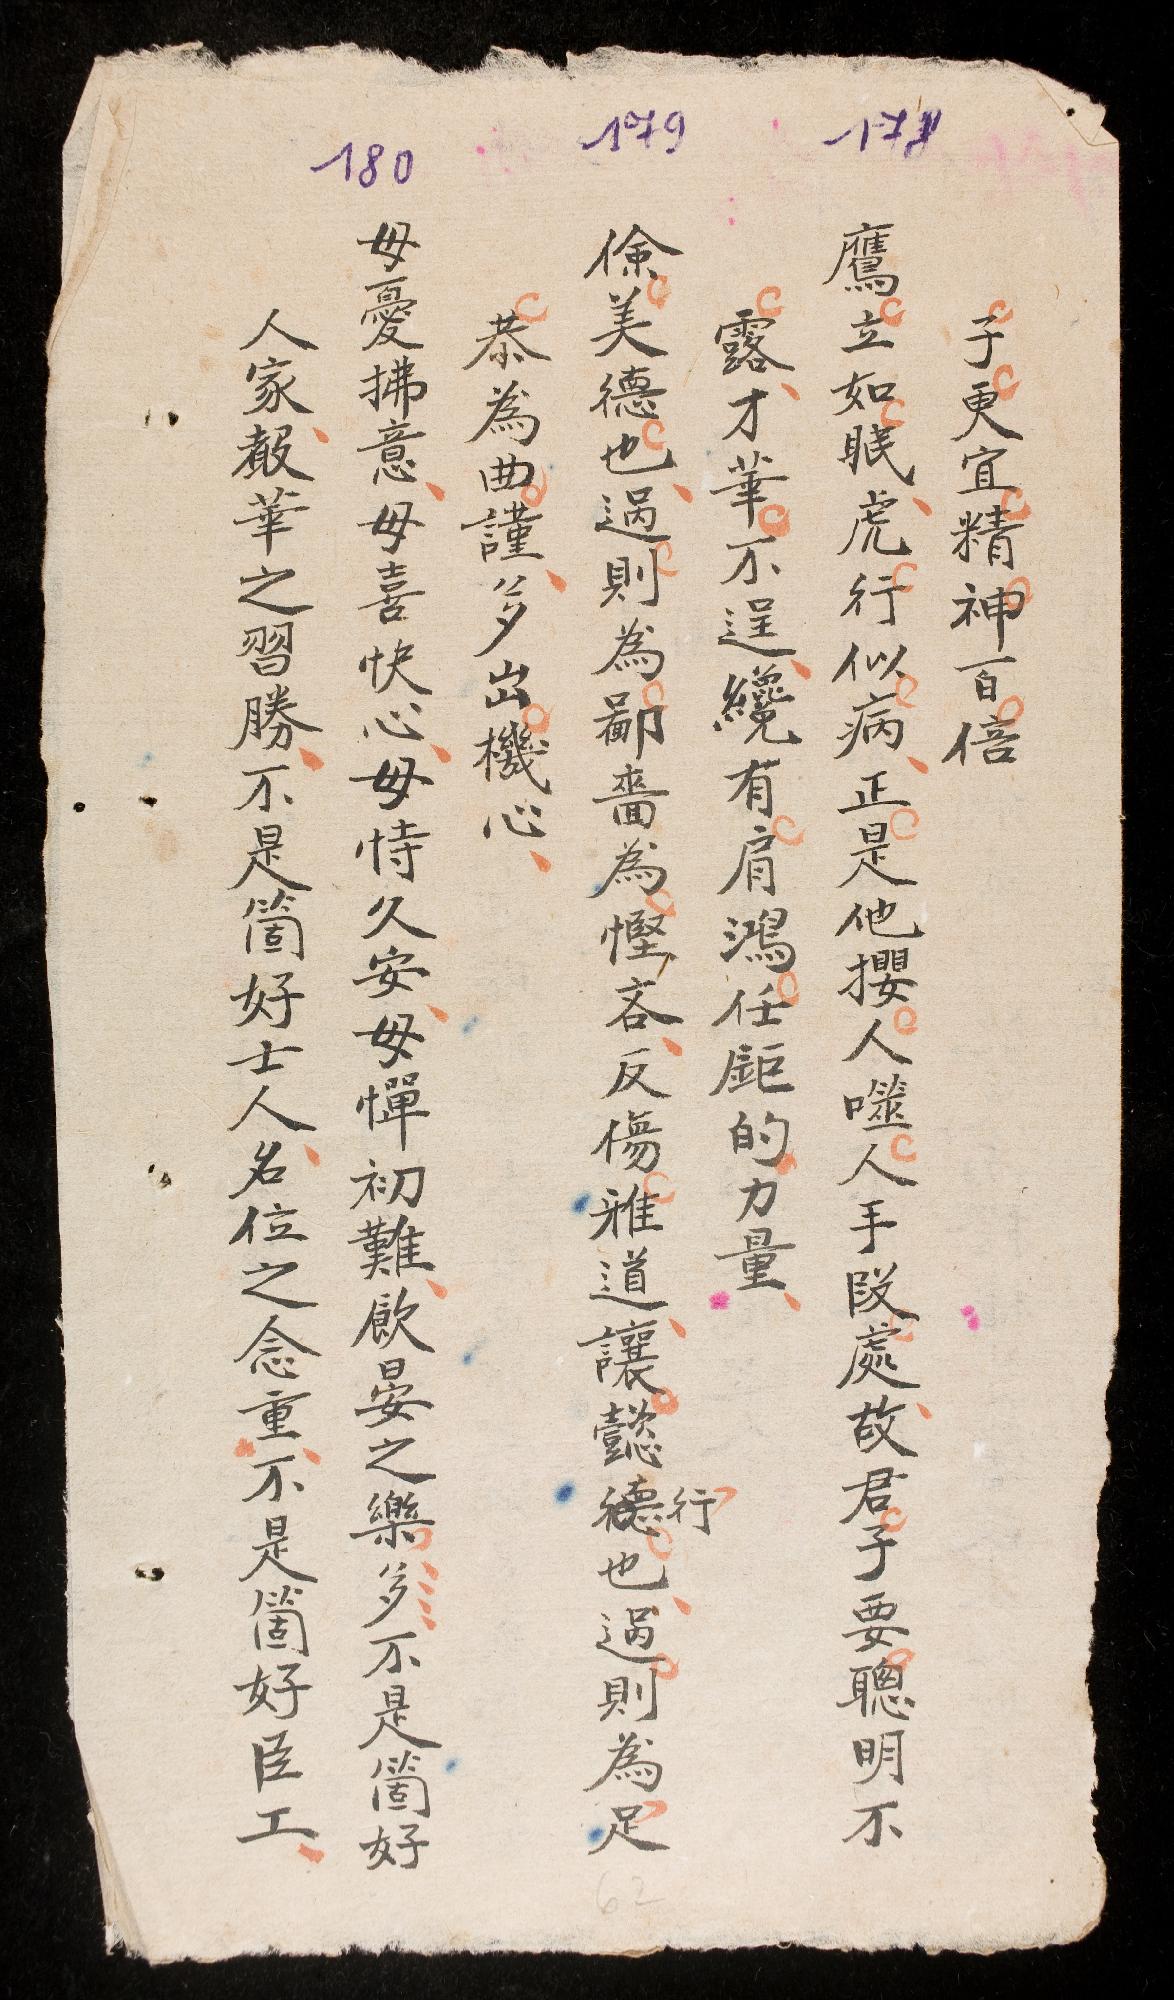 178
179
180
子更宜精神百倍
鷹立如眠虎行似病正是他攖人噬人手段處故君子要聰明不
露才華不逞纔有肩鴻任鉅的力量
儉美德也過則為鄙嗇為慳吝反傷雅道讓懿德也過則為足
行
恭為曲謹多出機心
毋憂拂意毋喜快心毋恃久安毋憚初難飲晏之樂多不是箇好
人家聲華之習勝不是箇好士人名位之念重不是箇好臣工
62